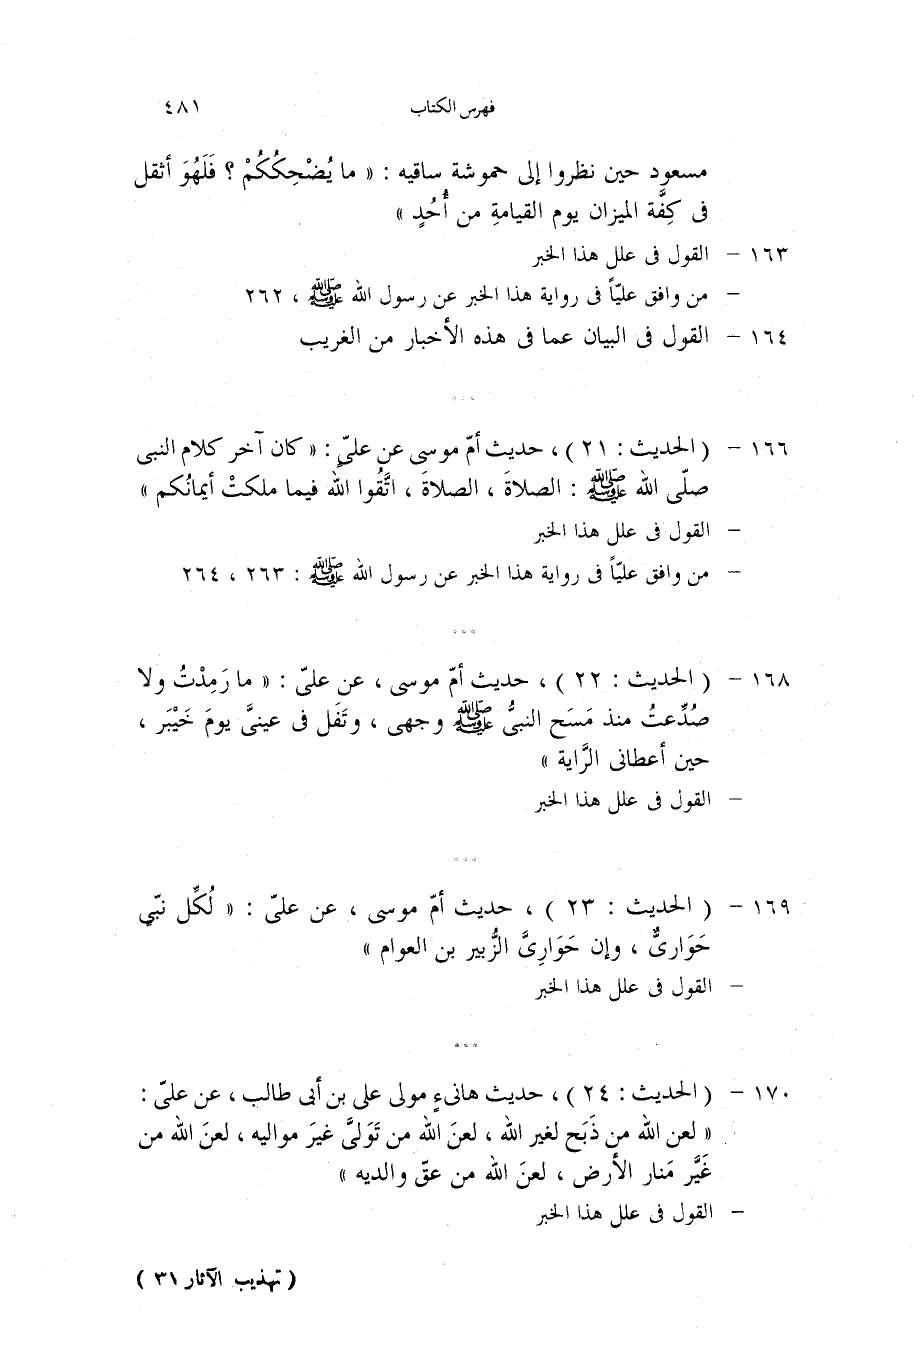 فهرس الكتاب ٤٨١
مسعود حين نظروا إلى حموشة ساقيه : « ما يُضْحِكُكُمْ ؟ فَلَهُوَ أثقل
فى كِفَّة الميزان يوم القيامةِ من أُحُدٍ »
١٦٣ – القول فى علل هذا الخبر
– من وافق عليّاً فى رواية هذا الخبر عن رسول الله ﷺ ، ٢٦٢
١٦٤ – القول فى البيان عما فى هذه الأخبار من الغريب
١٦٦ – ( الحديث : ٢١ ) ، حديث أمّ موسى عن علىٍّ : « كان آخر كلام النبى
صلّى الله ﷺ : الصلاةَ ، الصلاةَ ، اتَّقُوا الله فيما ملكتْ أيمانُكم »
– القول فى علل هذا الخبر
– من وافق عليّاً فى رواية هذا الخبر عن رسول الله ﷺ : ٢٦٣ ، ٢٦٤
١٦٨ – ( الحديث : ٢٢ ) ، حديث أمّ موسى ، عن علىّ : « ما رَمِدْتُ ولا
صُدِّعتُ منذ مَسَح النبىُّ ﷺ وجهى ، وتَفَل فى عينىَّ يومَ خَيْبَر ،
حين أعطانى الرَّاية »
– القول فى علل هذا الخبر
١٦٩ – ( الحديث : ٢٣ ) ، حديث أمّ موسى ، عن علىّ : « لُكِّل نبّىٍ
حَوَارىٌّ ، وإن حَوَارِىَّ الزُّبير بن العوام »
– القول فى علل هذا الخبر
١٧٠ – ( الحديث : ٢٤ ) ، حديث هانىءٍ مولى على بن أبى طالب ، عن علىّ :
« لعن الله من ذَبَح لغير الله ، لعنَ الله من تَوَلىَّ غيرَ مواليه ، لعنَ الله من
غَيَّر مَنار الأرض ، لعنَ الله من عقّ والديه »
– القول فى علل هذا الخبر
( تهذيب الآثار ٣١ )